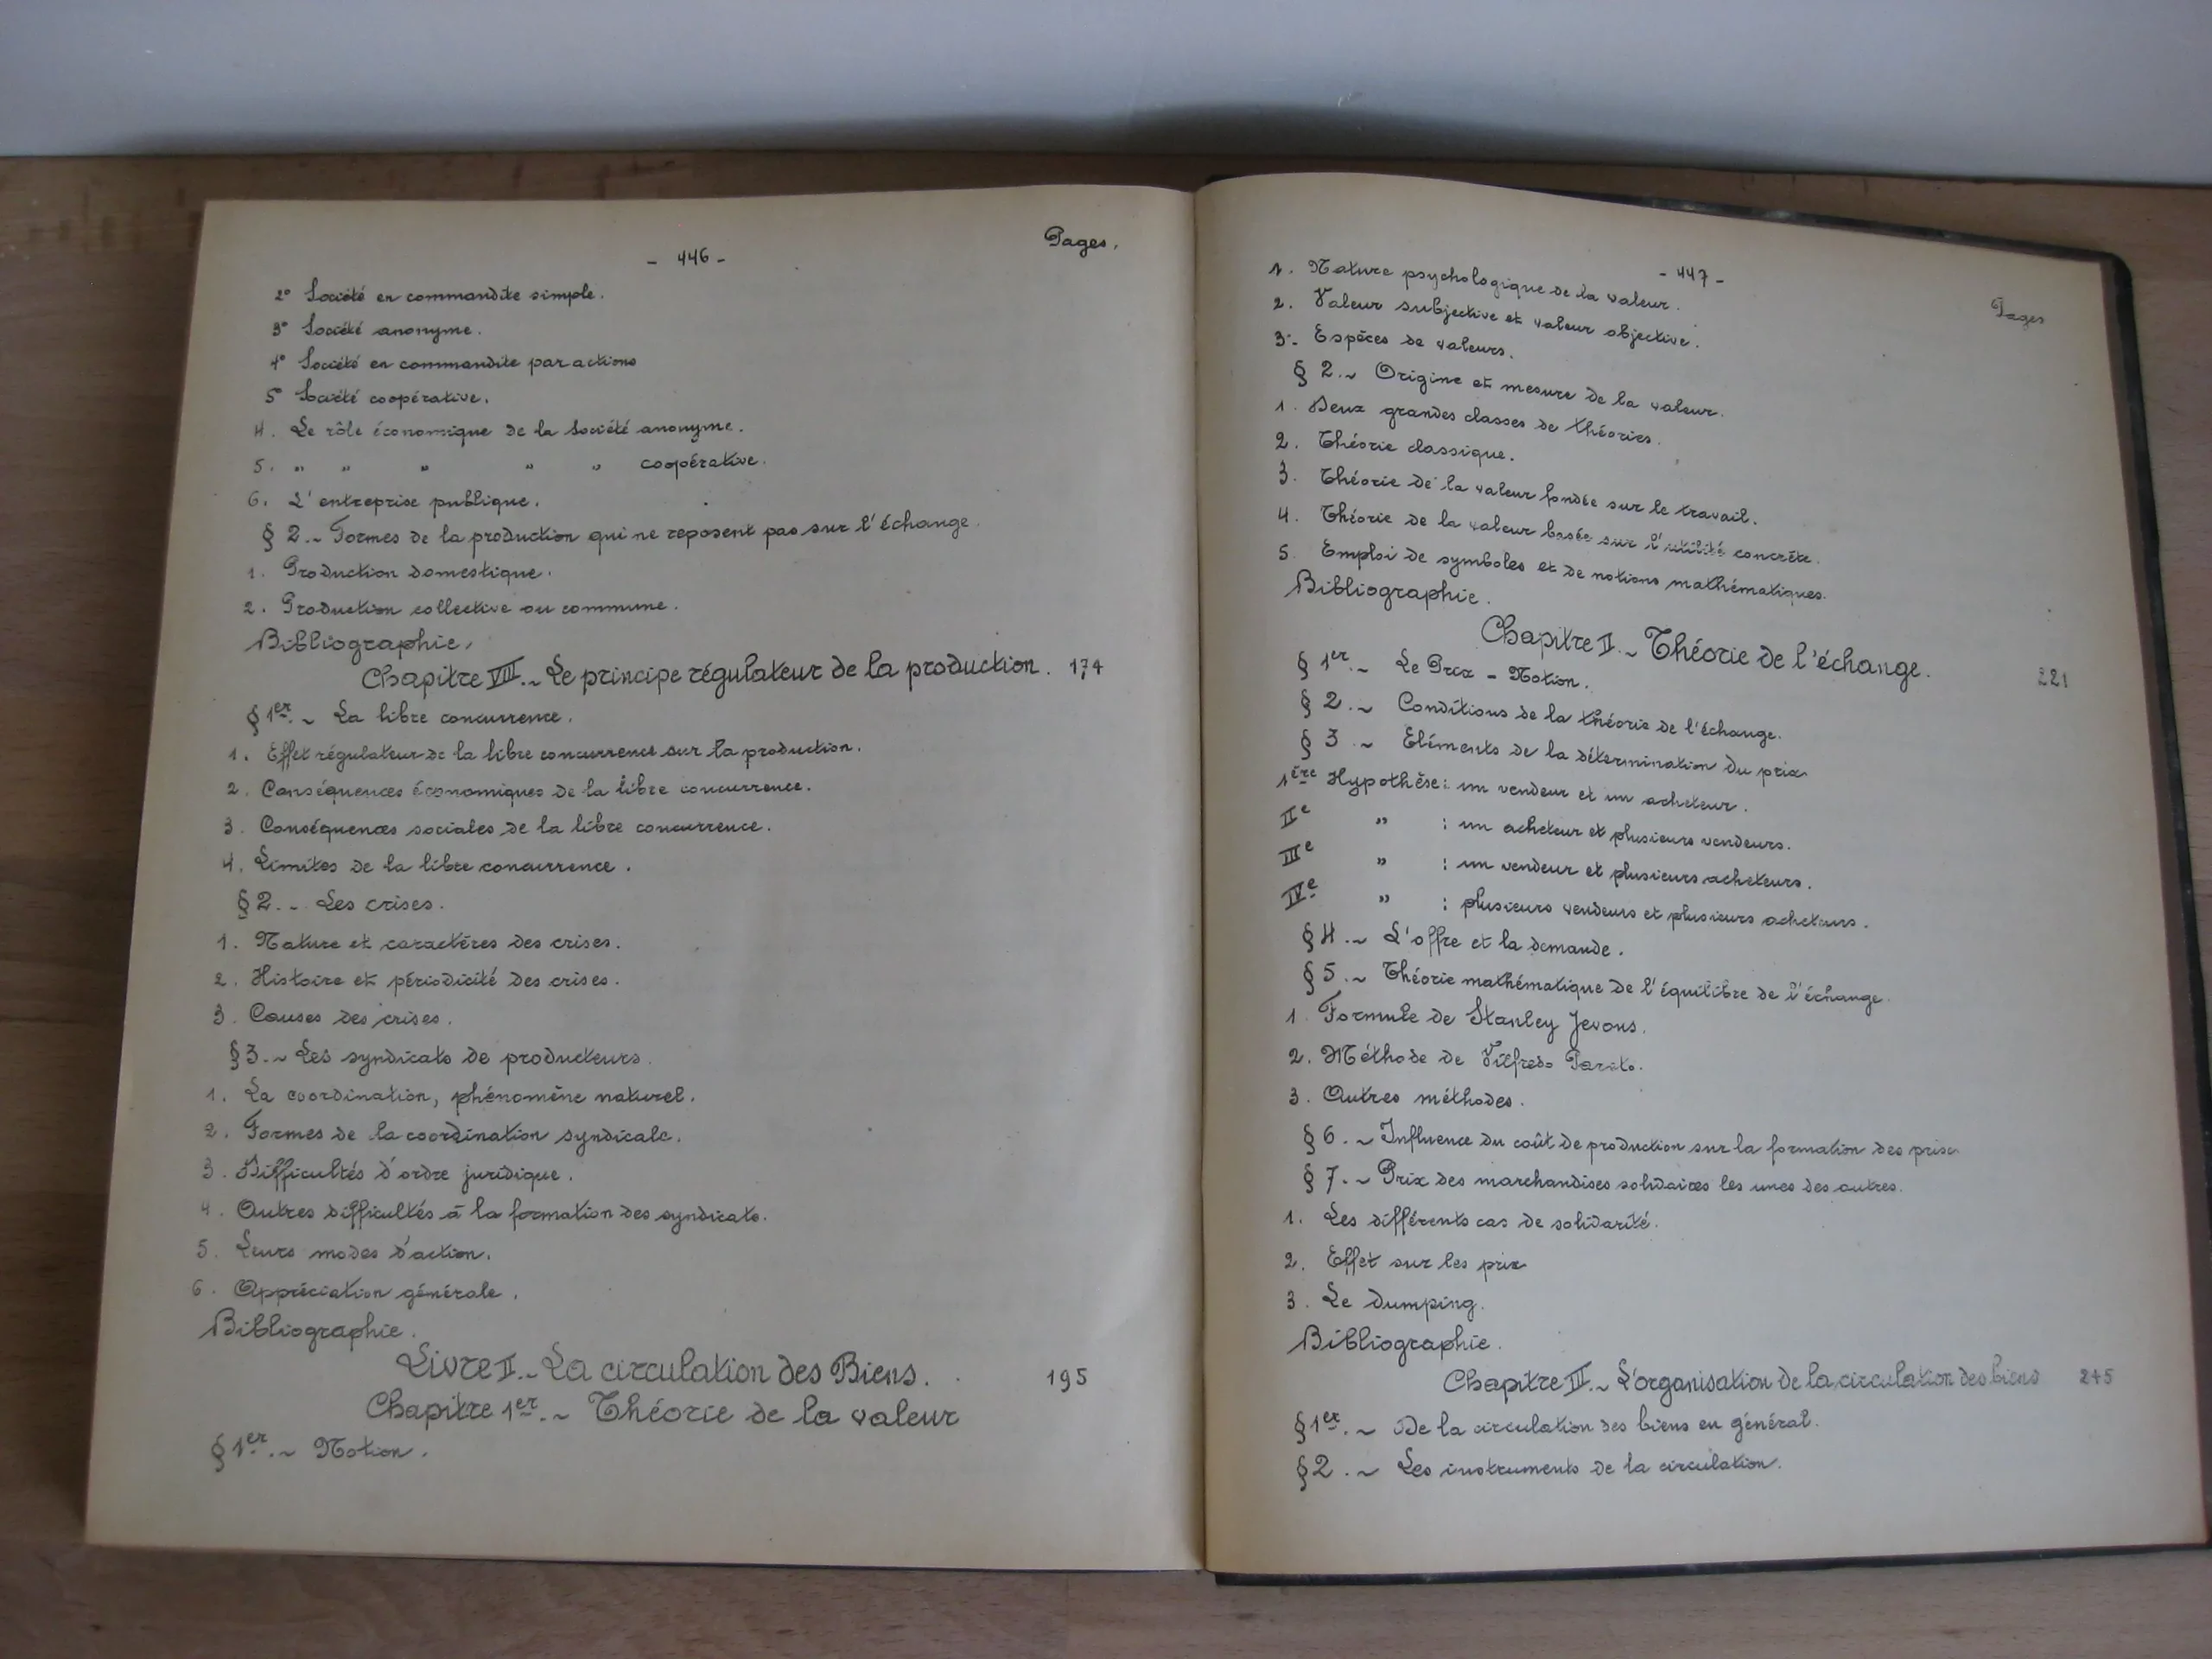 - 446 -
Pages.
2° Société en commandite simple.
3° Société anonyme.
4° Société en commandite par actions
5° Société coopérative.
4. Le rôle économique de la Société anonyme.
5. " " " " " coopérative.
6. L'entreprise publique.
§ 2.- Formes de la production qui ne reposent pas sur l'échange.
1. Production domestique.
2. Production collective ou commune.
Bibliographie.
Chapitre VIII.- Le principe régulateur de la production. 174
§ 1er.- La libre concurrence.
1. Effet régulateur de la libre concurrence sur la production.
2. Conséquences économiques de la libre concurrence.
3. Conséquences sociales de la libre concurrence.
4. Limites de la libre concurrence.
§ 2.- Les crises.
1. Nature et caractères des crises.
2. Histoire et périodicité des crises.
3. Causes des crises.
§ 3.- Les syndicats de producteurs.
1. La coordination, phénomène naturel.
2. Formes de la coordination syndicale.
3. Difficultés d'ordre juridique.
4. Autres difficultés à la formation des syndicats.
5. Leurs modes d'action.
6. Appréciation générale.
Bibliographie.
Livre II.- La circulation des Biens. 195
Chapitre 1er.- Théorie de la valeur
§ 1er.- Notion.
- 447 -
Pages
1. Nature psychologique de la valeur.
2. Valeur subjective et valeur objective.
3. Espèces de valeurs.
§ 2.- Origine et mesure de la valeur.
1. Deux grandes classes de théories.
2. Théorie classique.
3. Théorie de la valeur fondée sur le travail.
4. Théorie de la valeur basée sur l'utilité concrète.
5. Emploi de symboles et de notions mathématiques.
Bibliographie.
Chapitre II.- Théorie de l'échange. 221
§ 1er.- Le Prix - Notion.
§ 2.- Conditions de la théorie de l'échange.
§ 3.- Eléments de la détermination du prix
1ère Hypothèse: un vendeur et un acheteur.
IIe " : un acheteur et plusieurs vendeurs.
IIIe " : un vendeur et plusieurs acheteurs.
IVe " : plusieurs vendeurs et plusieurs acheteurs.
§ 4.- L'offre et la demande.
§ 5.- Théorie mathématique de l'équilibre de l'échange.
1. Formule de Stanley Jevons.
2. Méthode de Vilfredo Pareto.
3. Autres méthodes.
§ 6.- Influence du coût de production sur la formation des prix
§ 7.- Prix des marchandises solidaires les unes des autres.
1. Les différents cas de solidarité.
2. Effet sur les prix
3. Le dumping.
Bibliographie.
Chapitre III.- L'organisation de la circulation des biens 245
§ 1er.- De la circulation des biens en général.
§ 2.- Les instruments de la circulation.